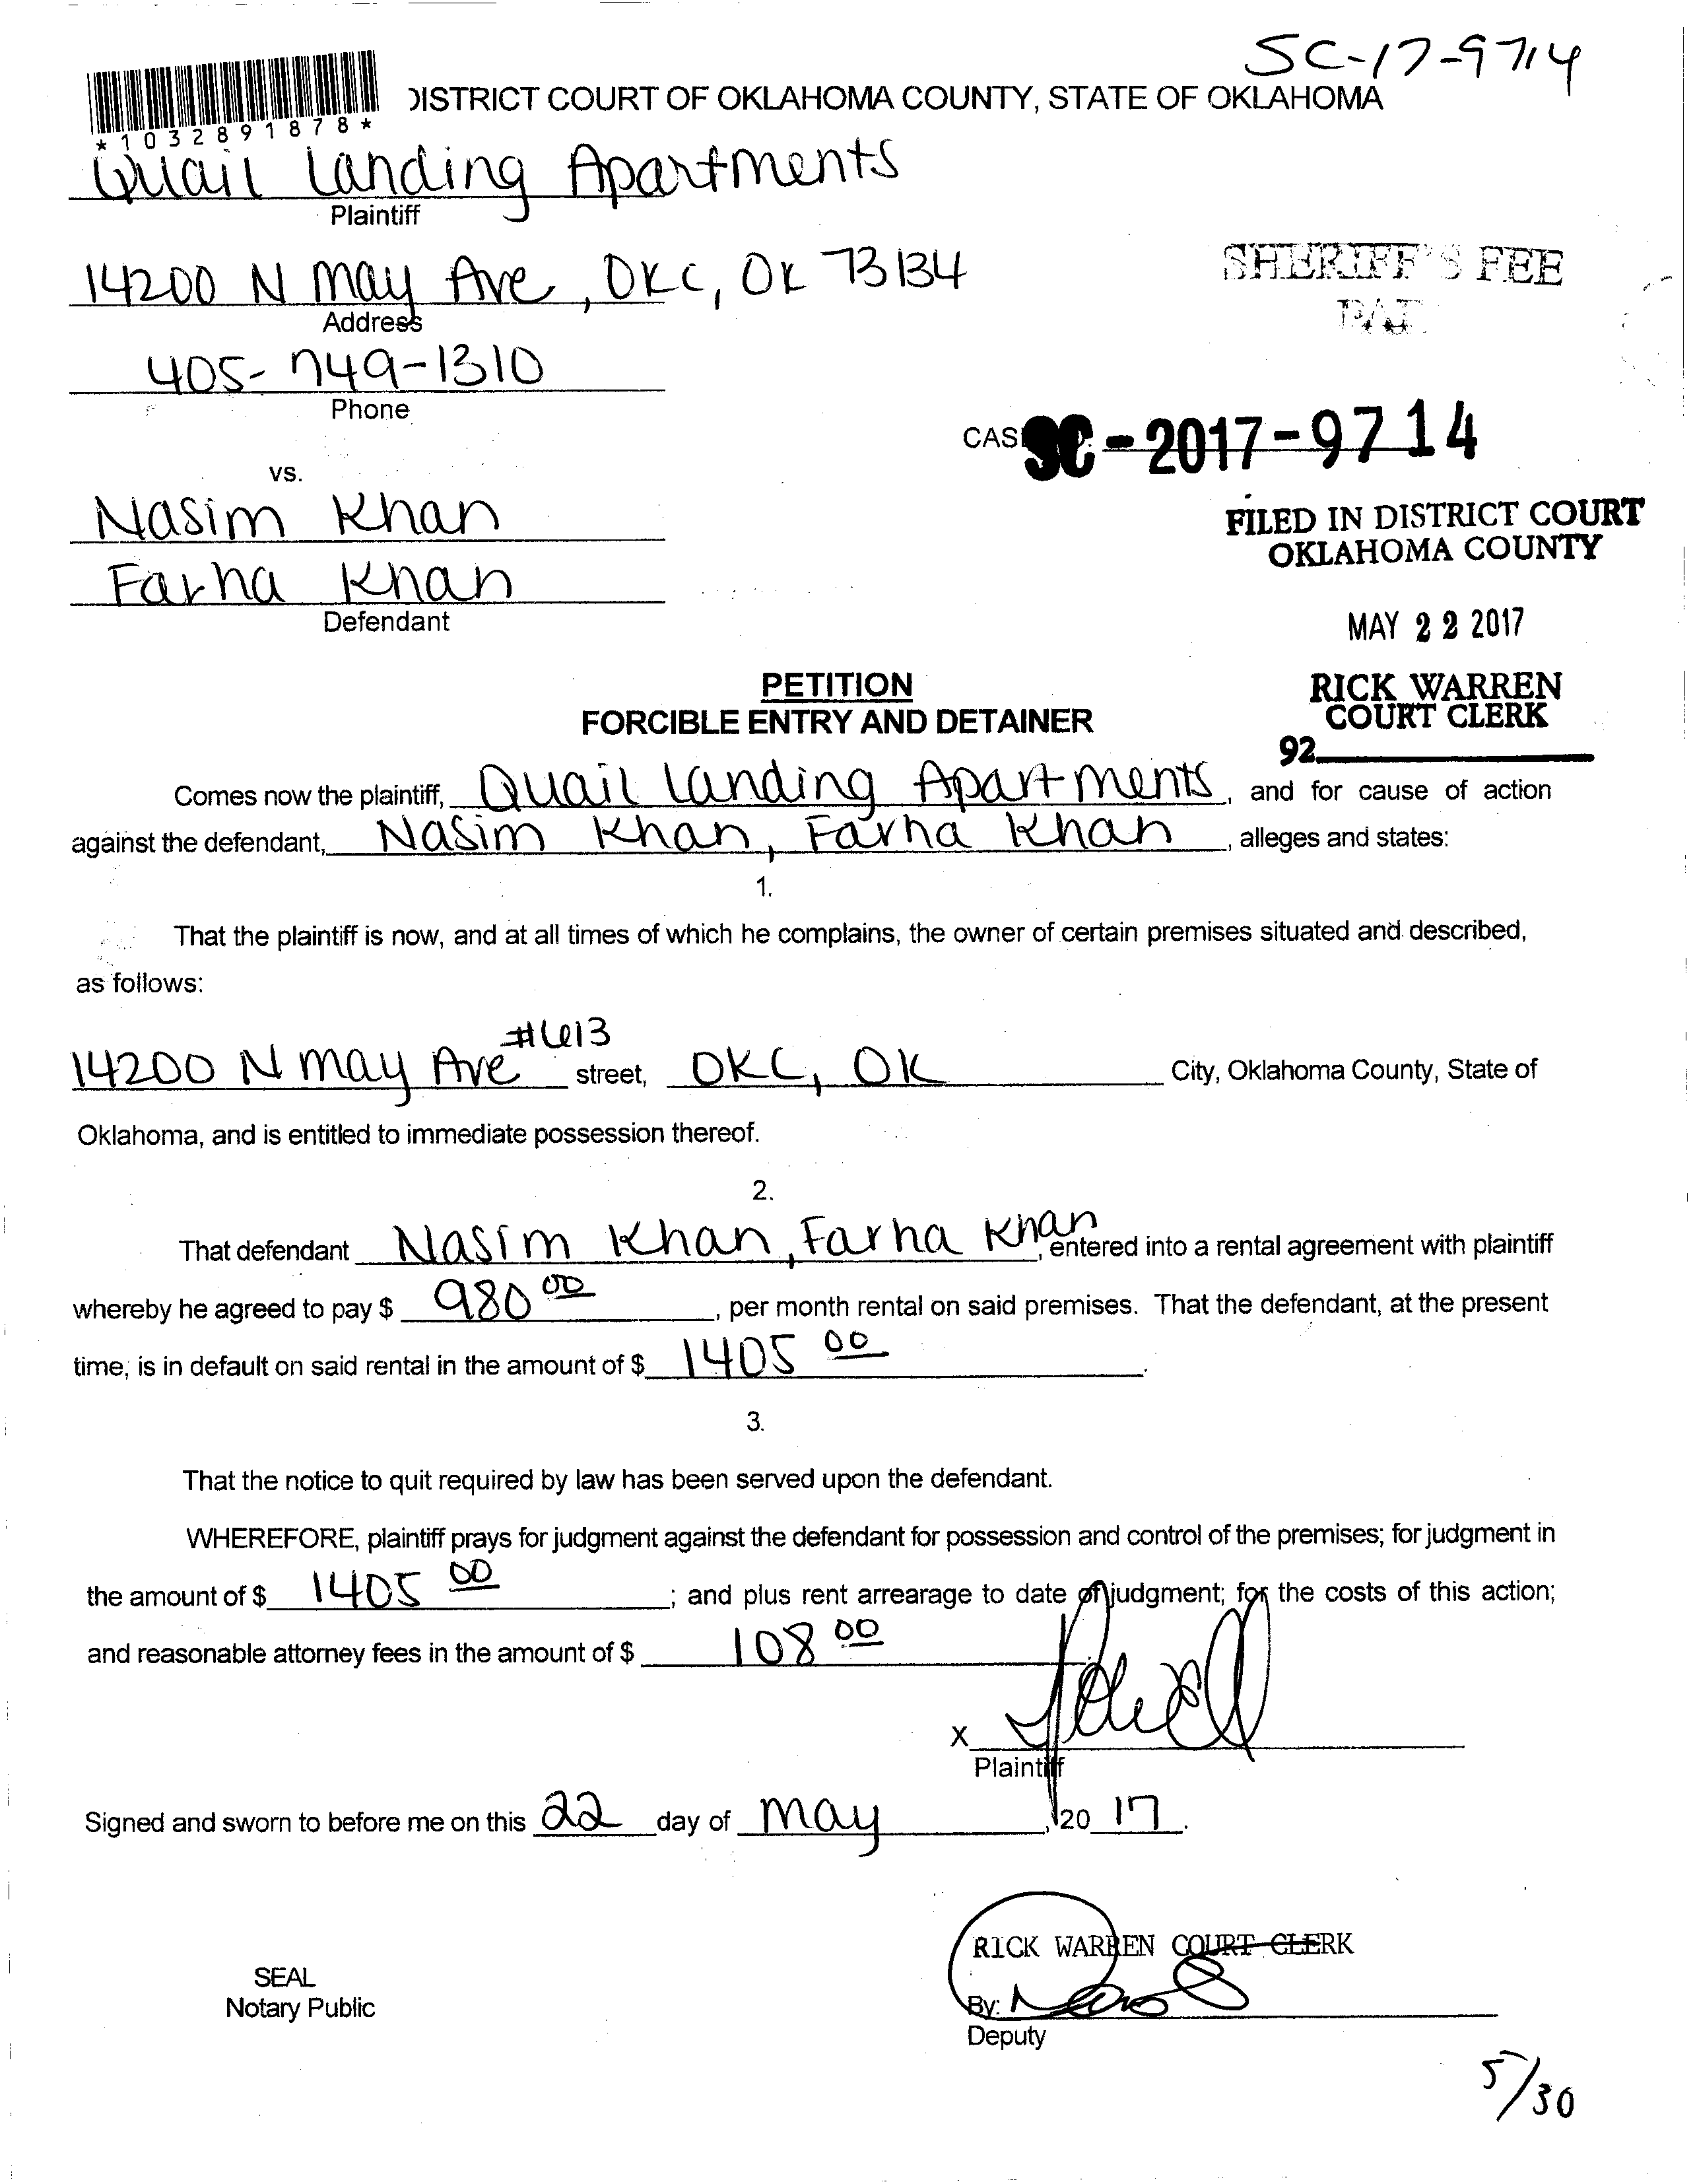 SC-17-9714
DISTRICT COURT OF OKLAHOMA COUNTY, STATE OF OKLAHOMA
*1032891878*
Quail Landing Apartments
Plaintiff
14200 N May Ave, OKC, OK 73134
Address
SHERIFF'S FEE
405-749-1310
Phone
CAS SC-2017-9714
vs.
Nasim Khan
FILED IN DISTRICT COURT
OKLAHOMA COUNTY
Farha Khan
Defendant
MAY 22 2017
PETITION
RICK WARREN
FORCIBLE ENTRY AND DETAINER
COURT CLERK
92
Comes now the plaintiff, Quail Landing Apartments, and for cause of action
against the defendant, Nasim Khan, Farha Khan, alleges and states:
1.
That the plaintiff is now, and at all times of which he complains, the owner of certain premises situated and described,
as follows:
14200 N May Ave #613 street, OKC, OK City, Oklahoma County, State of
Oklahoma, and is entitled to immediate possession thereof.
2.
That defendant Nasim Khan, Farha Khan, entered into a rental agreement with plaintiff
whereby he agreed to pay $ 980 00, per month rental on said premises. That the defendant, at the present
time, is in default on said rental in the amount of $ 1405 00.
3.
That the notice to quit required by law has been served upon the defendant.
WHEREFORE, plaintiff prays for judgment against the defendant for possession and control of the premises; for judgment in
the amount of $ 1405 00; and plus rent arrearage to date of judgment; for the costs of this action;
and reasonable attorney fees in the amount of $ 108 00
X
Plaintiff
Signed and sworn to before me on this 22 day of May, 20 17.
RICK WARREN COURT CLERK
SEAL
Notary Public
By:
Deputy
5/30